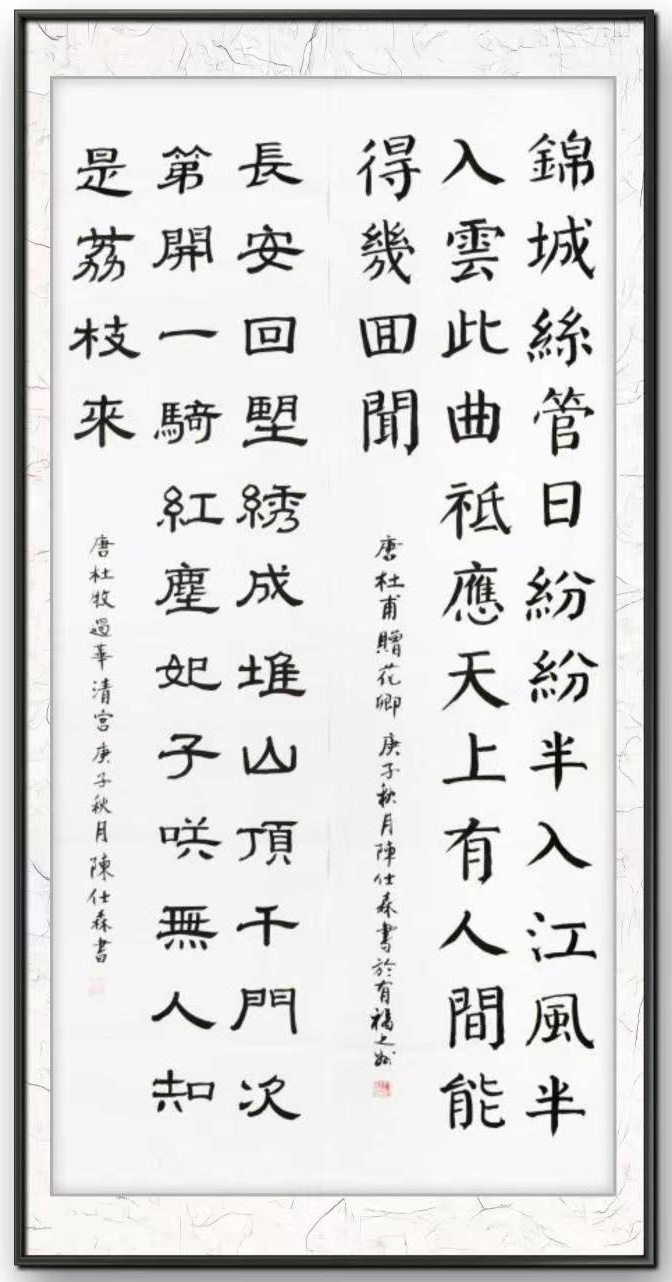 錦城絲管日紛紛半入江風半
入雲此曲祗應天上有人間能
得幾囬聞
唐杜甫贈花卿 庚子秋月陳仕森書於有福之州
長安回望綉成堆山頂千門次
第開一騎紅塵妃子咲無人知
是荔枝來
唐杜牧過華清宮庚子秋月陳仕森書